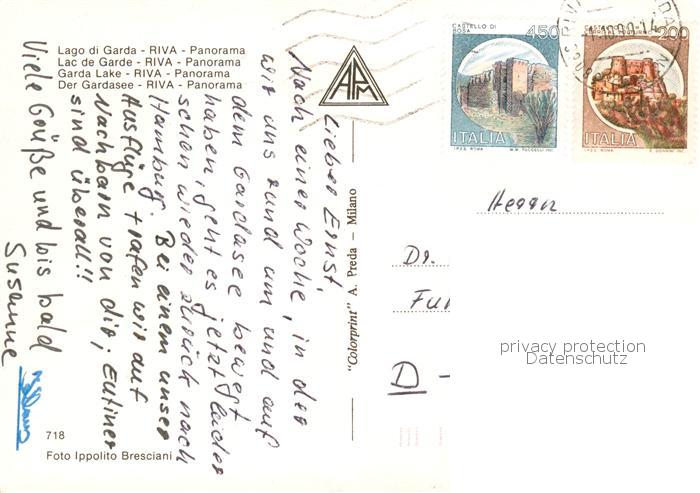 Lago di Garda - RIVA - Panorama
Lac de Garde - RIVA - Panorama
Garda Lake - RIVA - Panorama
Der Gardasee - RIVA - Panorama
APM
Lieber Ernst
Nach einer Woche, in der
wir uns rund um und auf
dem Gardasee bewegt
haben, geht es jetzt leider
schon wieder zurück nach
Hamburg. Bei einem unser
Ausflüge trafen wir auf
Nachbarn von dir; Eutiner
sind überall!!
Viele Grüße und bis bald
Susanne
718
Foto Ippolito Bresciani
"Colorprint" A. Preda — Milano
CASTELLO DI
BOSA
450
ITALIA
I.P.Z.S. ROMA
200
ITALIA
I.P.Z.S. ROMA
Herrn
Dr.
Fu
D -
privacy protection
Datenschutz